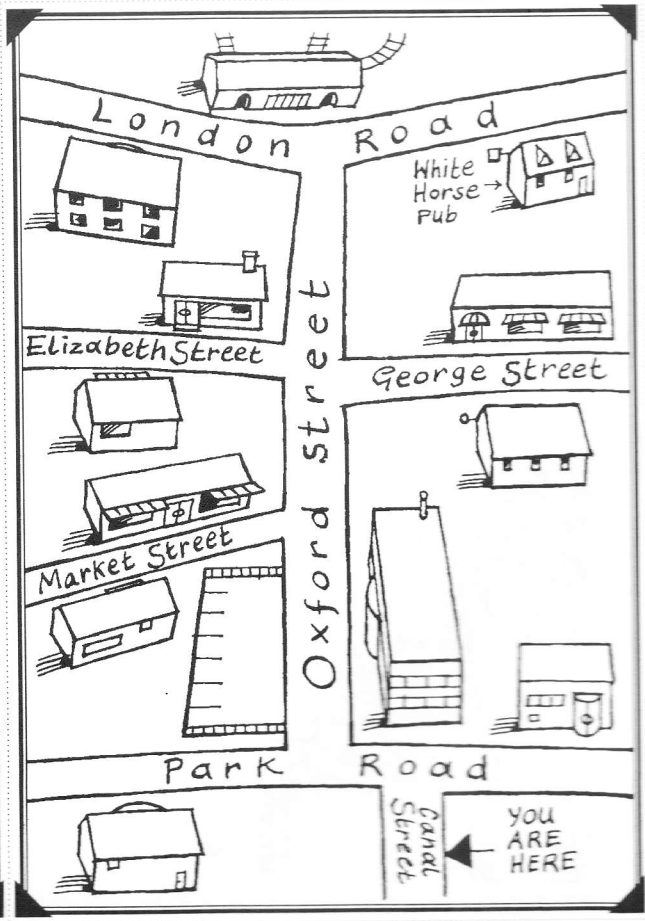 London Road
White
Horse
Pub
Elizabeth Street
George Street
Oxford Street
Market Street
Park Road
Canal
Street
YOU
ARE
HERE